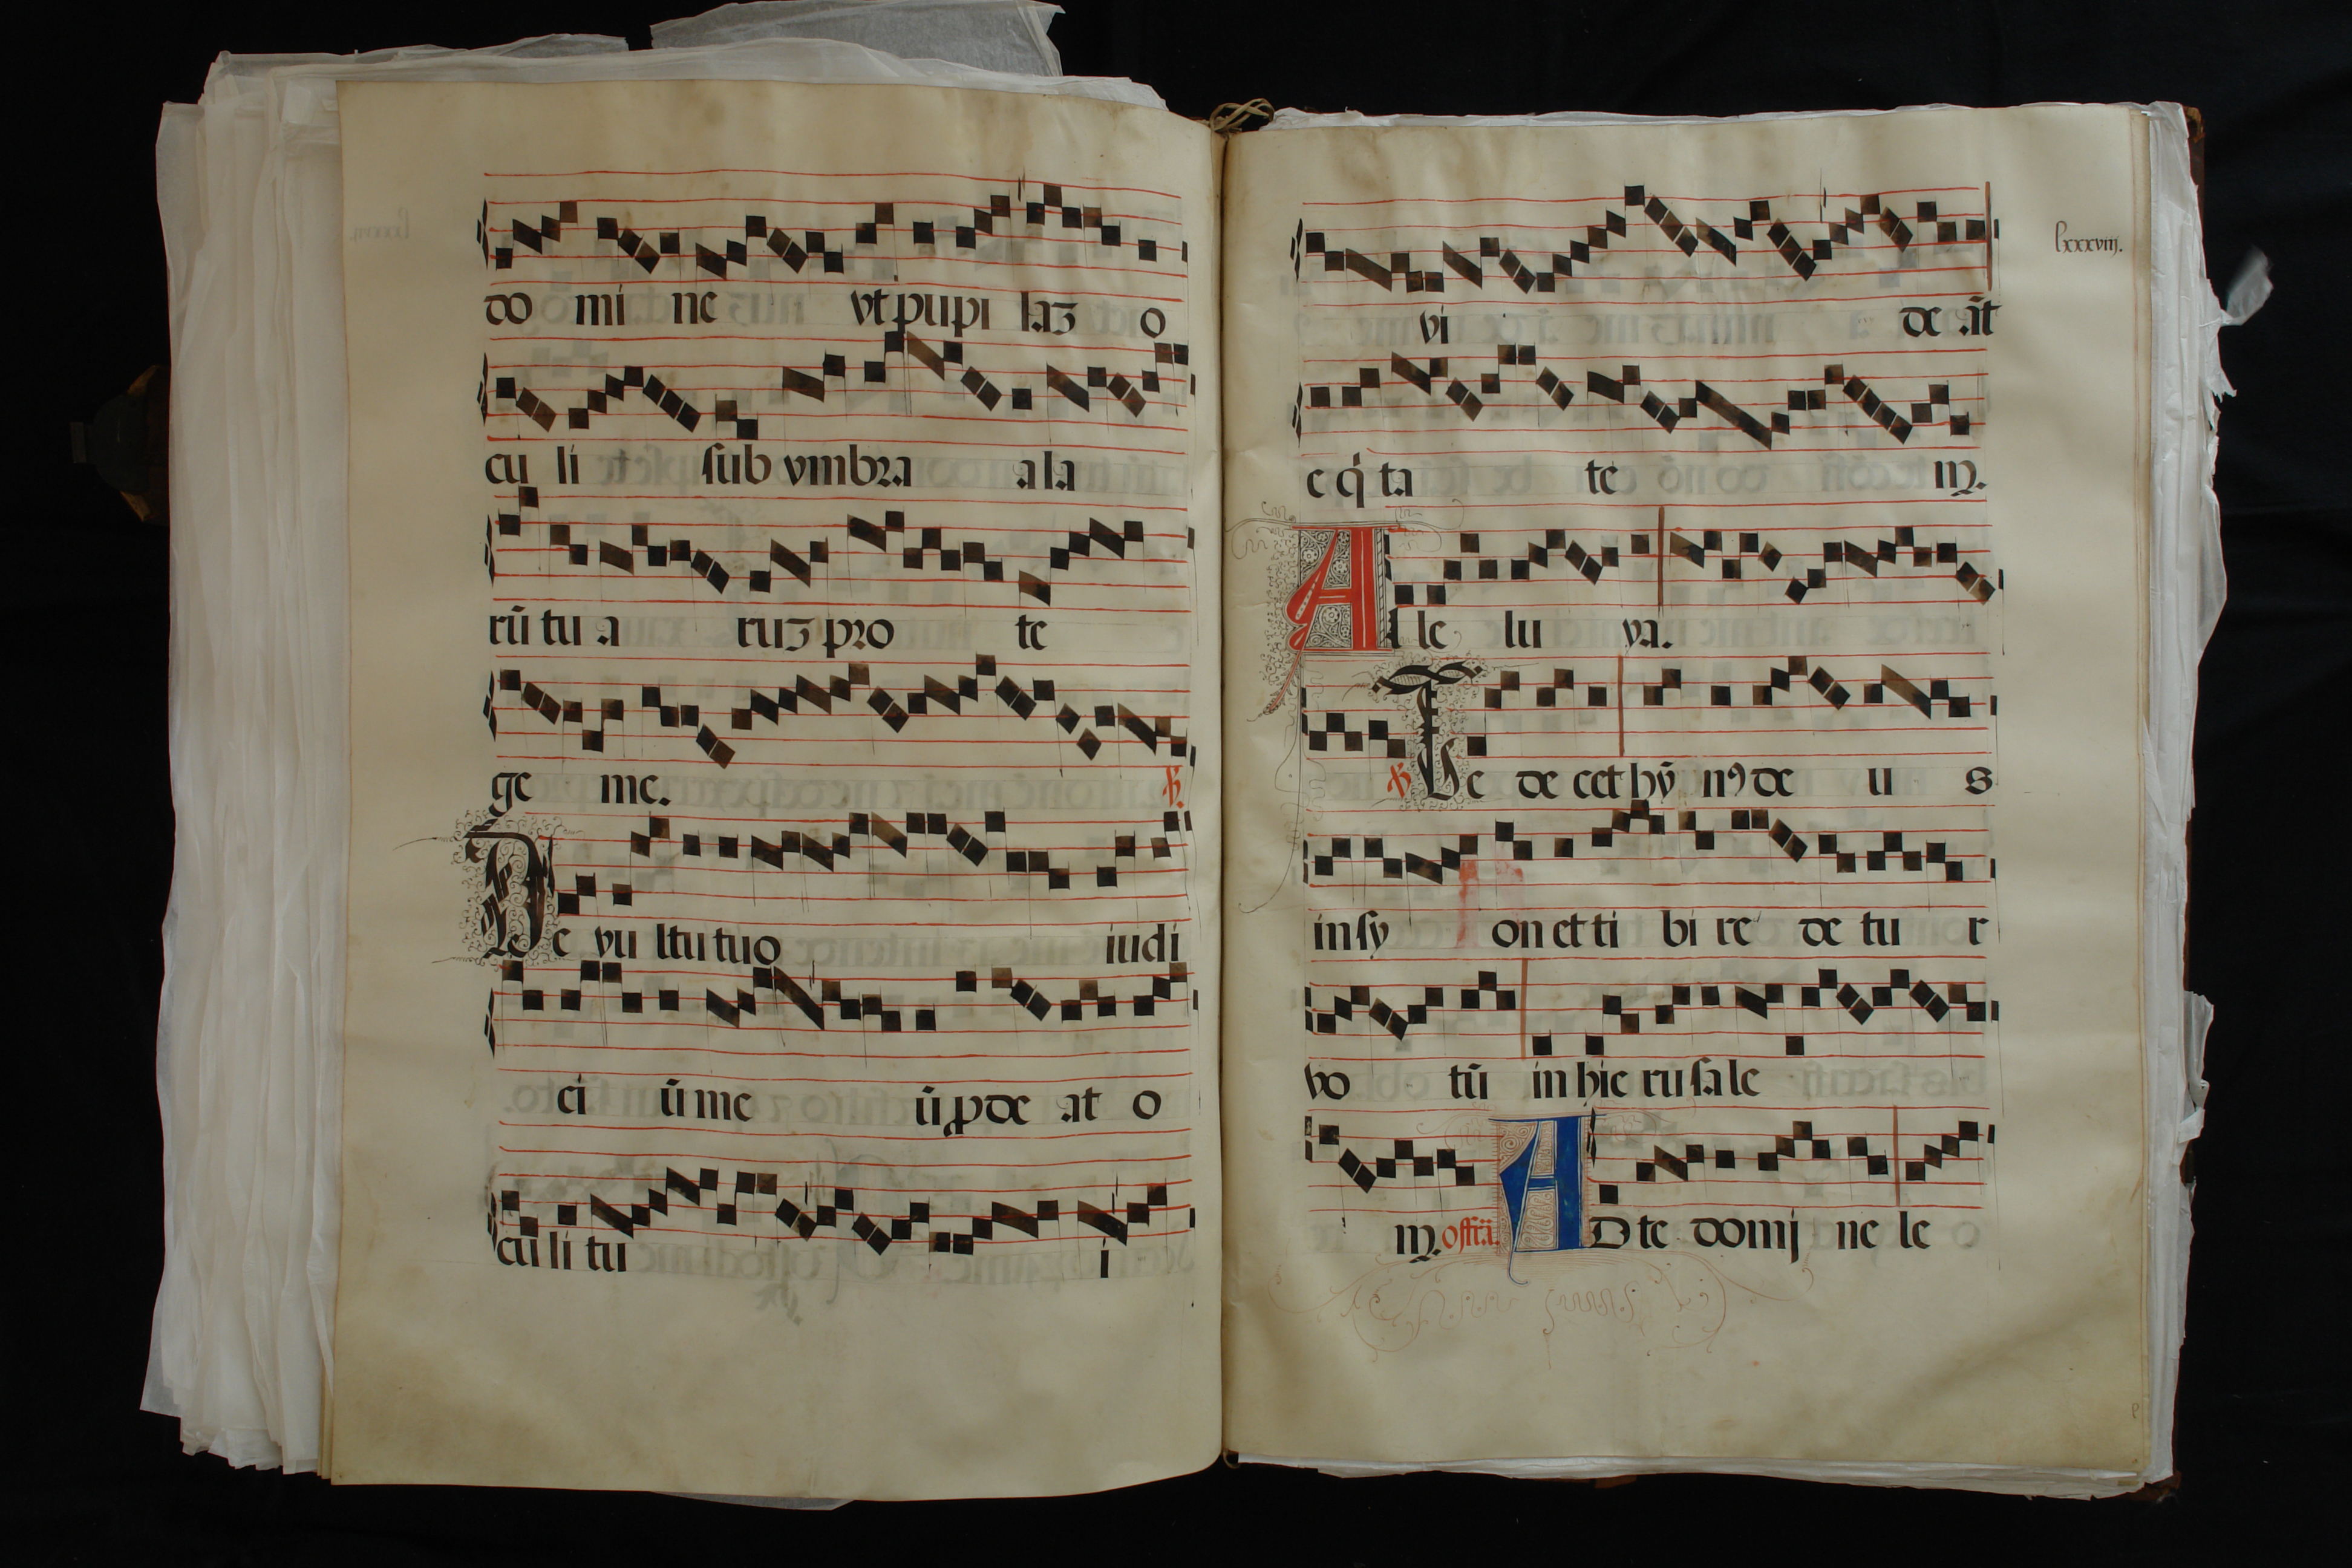 do mi ne vt pupi laʒ o
cu li ſub vmbra a la
rū tu a ruʒ pro te
ge me. ℣.
De vu ltu tuo iudi
ci ū me ū ꝓde at o
cu li tu i
lxxxviij.
vi de āt
e q̇ ta te m.
A l le lu ya.
℣ Te de cet hȳ nꝰ de u s
in ſy on et ti bi re de tu r
vo tū in hie ru ſa le
m. offr̄a. AD te domj ne le